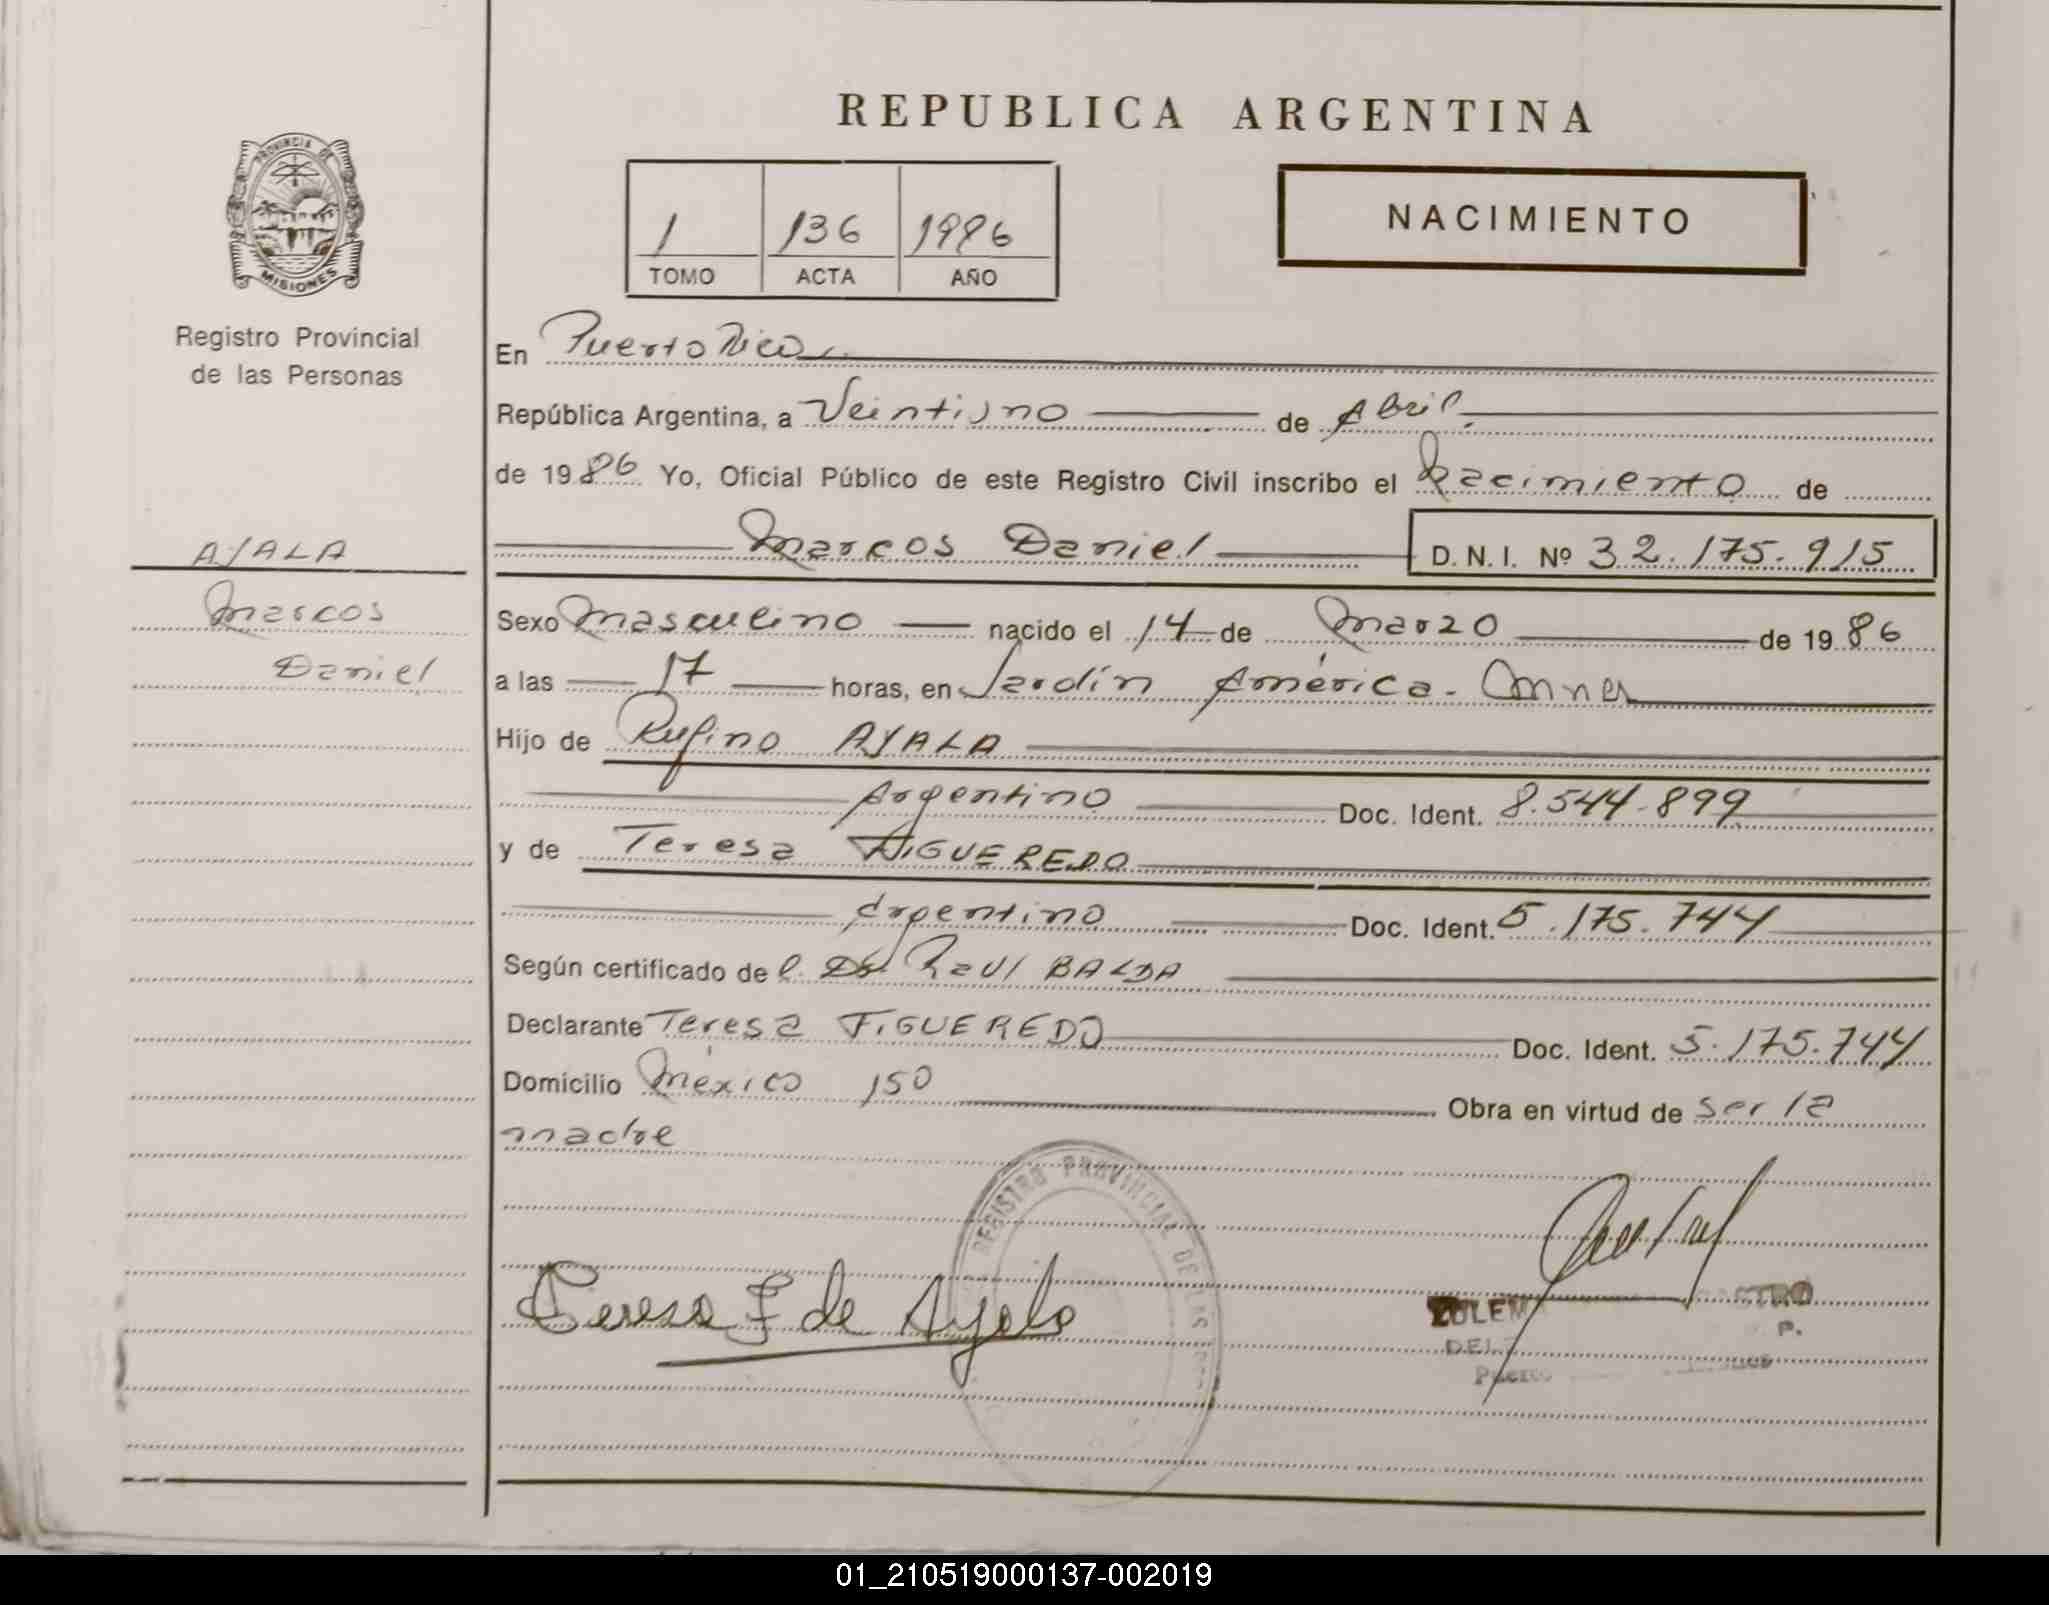 PROVINCIA DE
MISIONES
Registro Provincial
de las Personas
AYALA
Marcos
Daniel
REPUBLICA ARGENTINA
1 136 1986
TOMO ACTA AÑO
NACIMIENTO
En Puerto Rico
República Argentina, a Veintiuno de Abril
de 1986 Yo, Oficial Público de este Registro Civil inscribo el Nacimiento de
Marcos Daniel D.N.I. Nº 32.175.915
Sexo Masculino nacido el 14 de Marzo de 1986
a las 17 horas, en Jardín América.
Hijo de Rufino AYALA
Argentino Doc. Ident. 8.544.899
y de Teresa FIGUEREDO
Argentino Doc. Ident. 5.175.744
Según certificado de Raul BALDA
Declarante Teresa FIGUEREDO Doc. Ident. 5.175.744
Domicilio México 150 Obra en virtud de ser la
madre
REGISTRO PROVINCIAL DE LAS
Teresa F de Ayala
Puerto
01_210519000137-002019